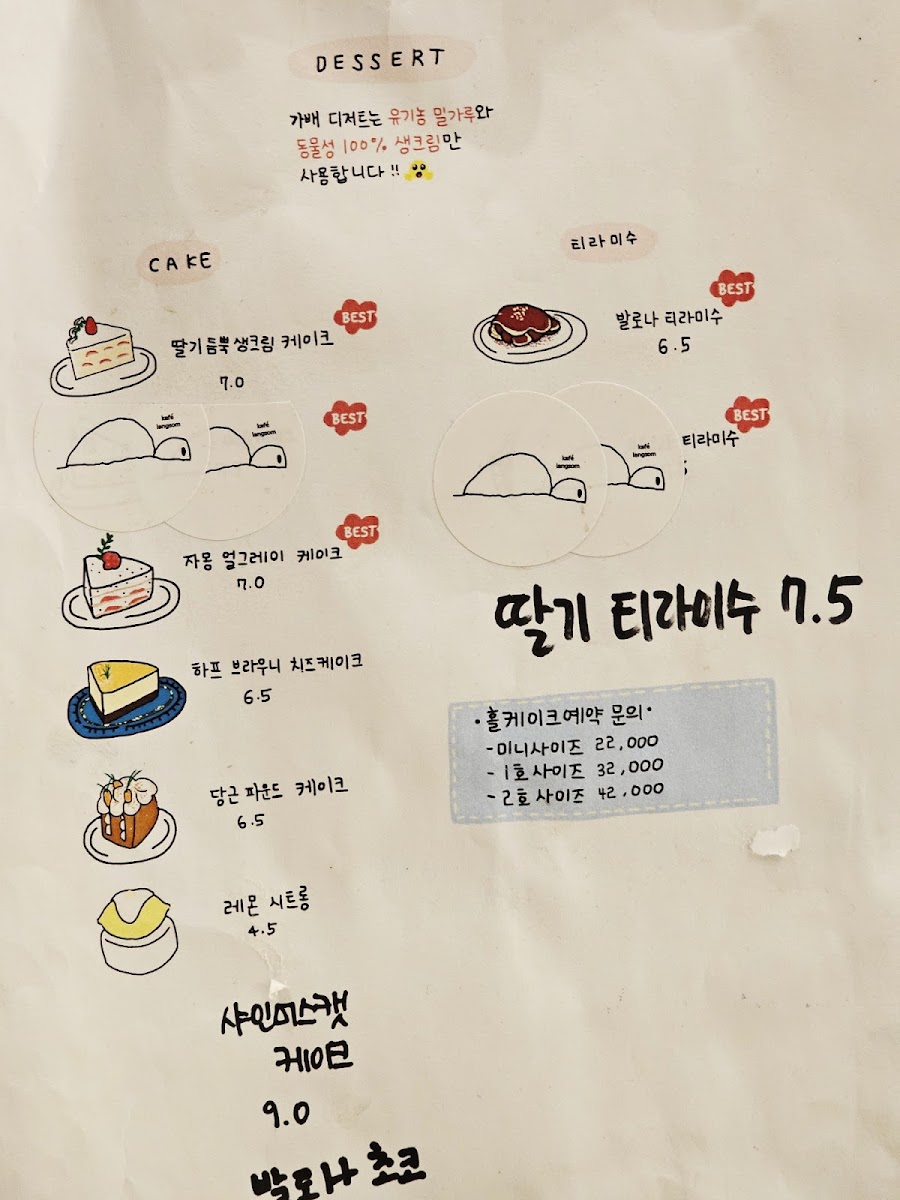 DESSERT
가배 디저트는 유기농 밀가루와
동물성 100% 생크림만
사용합니다!!
CAKE
BEST
딸기듬뿍생크림 케이크
7.0
BEST
kafé
langsom
kafé
langsom
BEST
자몽 얼그레이 케이크
7.0
하프 브라우니 치즈케이크
6.5
당근파운드 케이크
6.5
레몬 시트롱
4.5
샤인머스캣
케이크
9.0
발로나 초코
티라미수
BEST
발로나 티라미수
6.5
BEST
티라미수
kafé
langsom
kafé
langsom
딸기 티라미수 7.5
·홀케이크예약 문의·
-미니사이즈 22,000
-1호사이즈 32,000
-2호사이즈 42,000